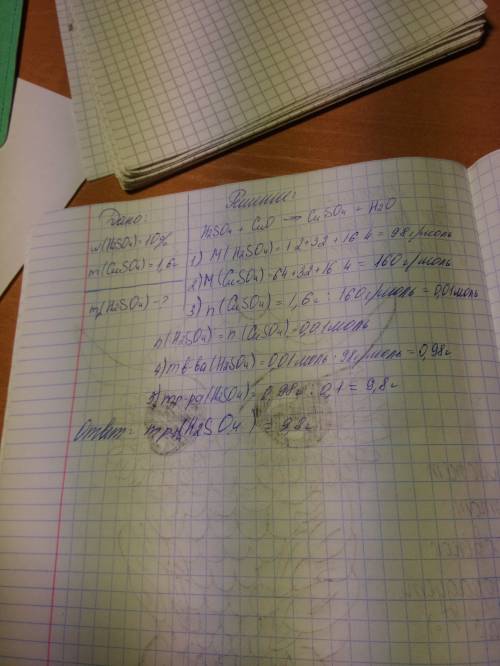 Дано:
w(H2SO4)=10%
m(CuSO4)=1,6г
mр(H2SO4)-?
Решение:
H2SO4 + CuO → CuSO4 + H2O
1) M(H2SO4)=1·2+32+16·4=98г/моль
2) M(CuSO4)=64+32+16·4=160г/моль
3) n(CuSO4)=1,6г : 160г/моль=0,01моль
n(H2SO4)=n(CuSO4)=0,01моль
4) mв-ва(H2SO4)=0,01моль·98г/моль=0,98г
5) mр-ра(H2SO4)=0,98г : 0,1=9,8г
Ответ: mр-ра(H2SO4)=9,8г